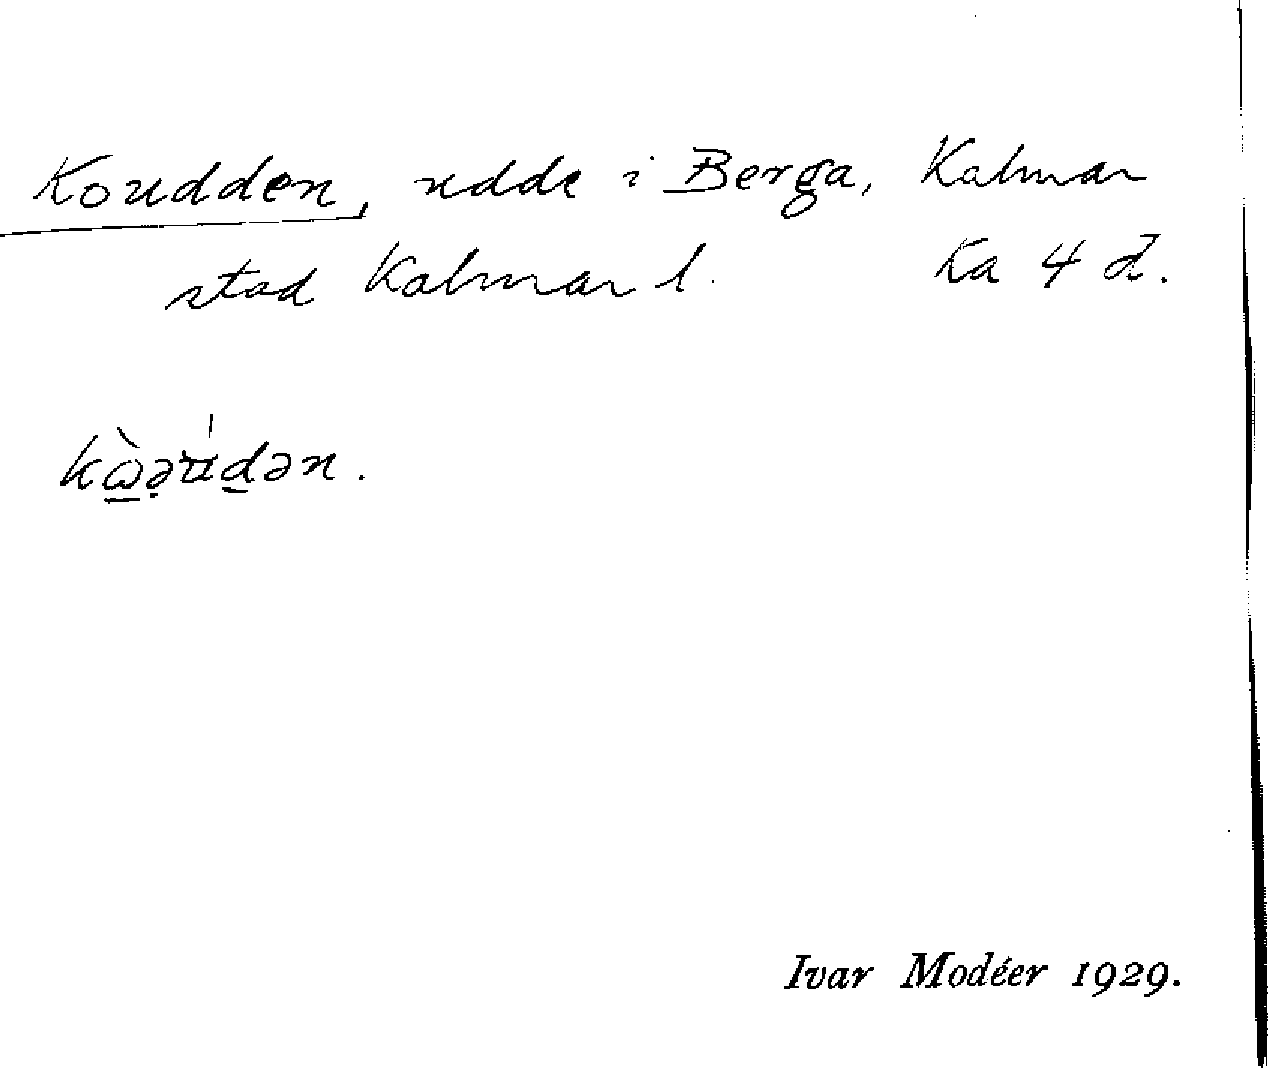 Koudden, udde i Berga, Kalmar
stad Kalmar l. Ka 4 d.
kὼ̱ə̣ú̈d̲ən.
Ivar Modéer 1929.